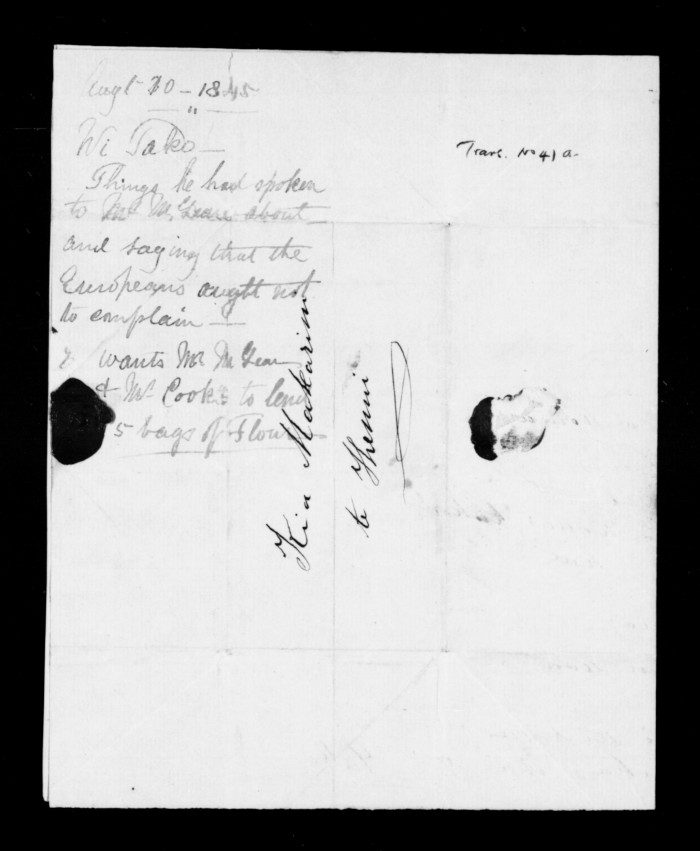 Augt 30 - 1845
"
Wi Tako -
Things he had spoken
to Mr McLean about
and saying that the
Europeans ought not
to complain -
& wants Mr McLean
& Mr Cook to lend
5 bags of Flour
Trans. No 41 a.
Kia Makarini
te